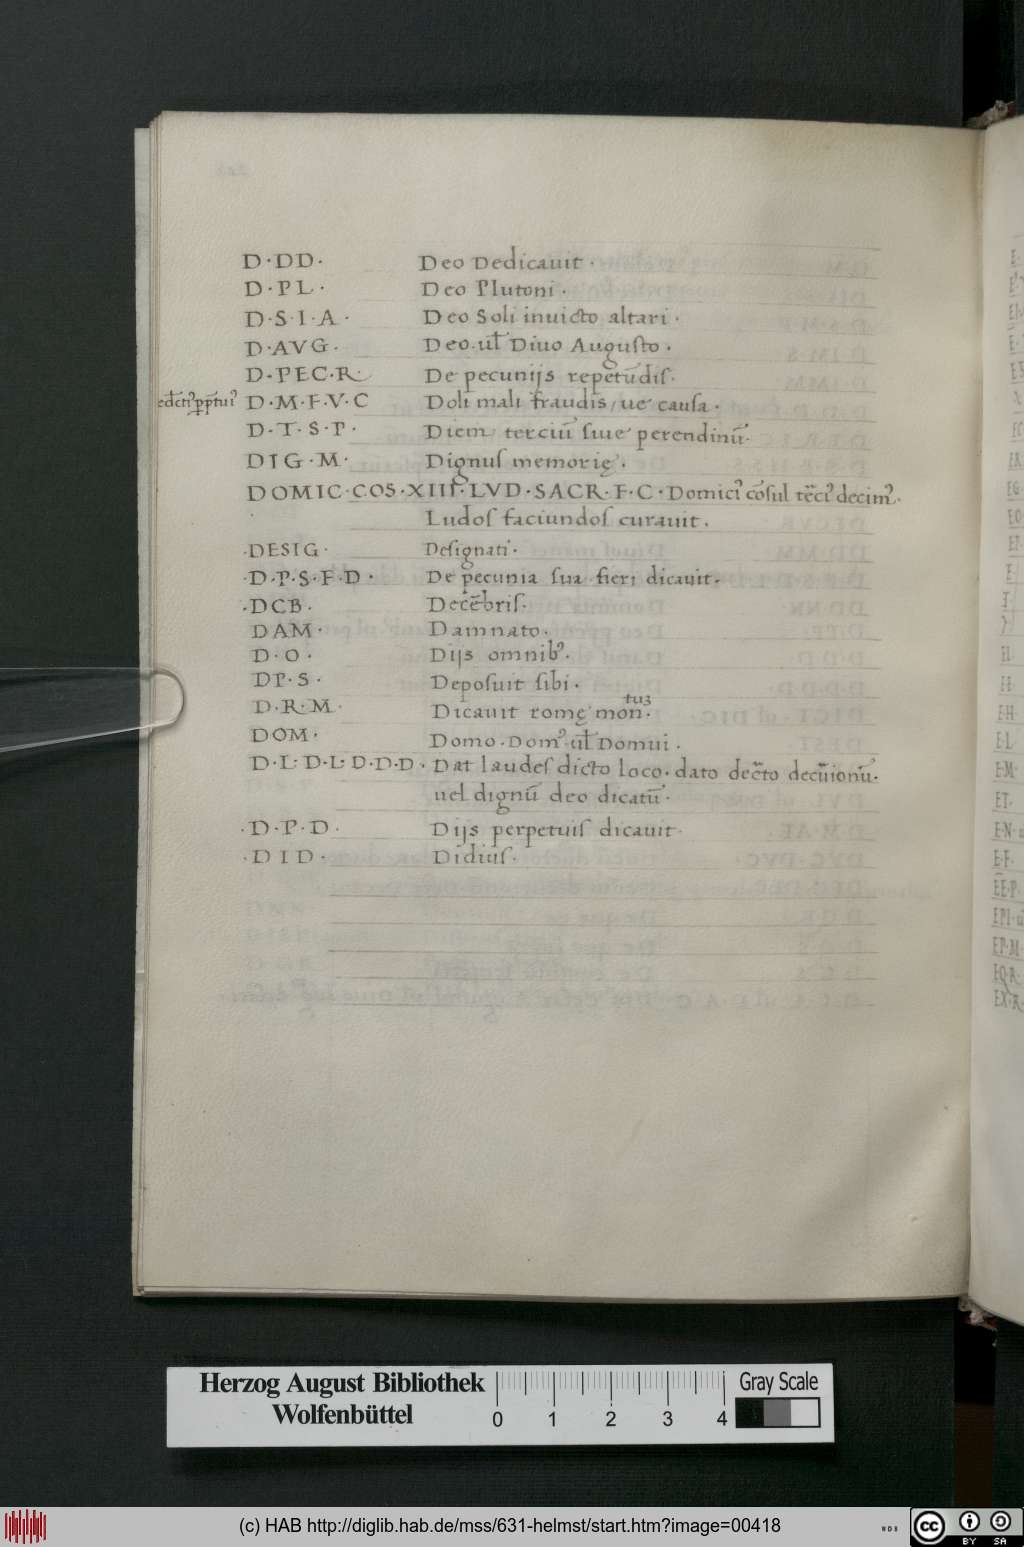 D·DD· Deo Dedicauit·
D·PL· Deo Plutoni·
D·S·I·A· Deo Soli inuicto altari·
D·AVG· Deo·ul̄ Diuo Augusto·
D·PEC·R· De pecunijs repetūdis·
D·M·F·V·C Doli mali fraudis/ue causa·
D·T·S·P· Diem terciū siue perendinū·
DIG·M· Dignus memorię·
DOMIC·COS·XIII·LVD·SACR·F·C· Domici᾽ cōsul decim᾽·
Ludos faciundos curauit·
·DESIG· Designati·
·D·P·S·F·D· De pecunia sua fieri dicauit·
·DCB· Decēbris·
DAM· Damnato·
D·O· Dijs omnib᾽·
DP·S· Deposuit sibi·
D·R·M· Dicauit romę mon·tuꝫ
DOM· Domo·Dom᾽·ul̄ Domui·
D·L: D·L: D·D·D· Dat laudes dicto loco·dato decr̄to decur̄ionū·
uel dignū deo dicatū·
·D·P·D· Dijs perpetuis dicauit·
·DID· Didius·
E·
E·
E·L·
E·M·
ET·
E·N·
E·F·
EE·P·
EPI·
EP·M·
EQ·R·
EX·R·
Herzog August Bibliothek
Wolfenbüttel
0 1 2 3 4
Gray Scale
(c) HAB http://diglib.hab.de/mss/631-helmst/start.htm?image=00418
WDB
cc BY SA